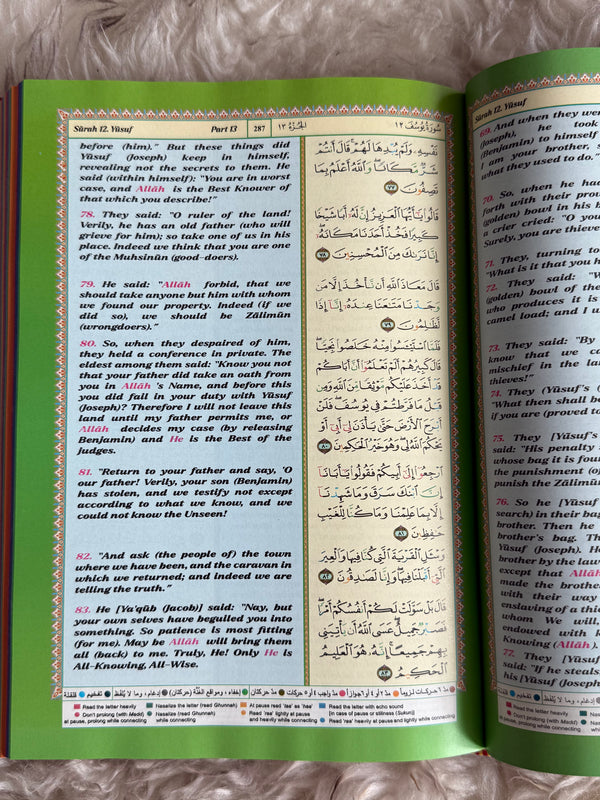 Sūrah 12. Yūsuf Part 13 287 الجزء ١٣ سورة يوسف ١٢
before (him)." But these things did
Yūsuf (Joseph) keep in himself,
revealing not the secrets to them. He
said (within himself): "You are in worst
case, and Allāh is the Best Knower of
that which you describe!"
78. They said: "O ruler of the land!
Verily, he has an old father (who will
grieve for him); so take one of us in his
place. Indeed we think that you are one
of the Muhsinūn (good-doers).
79. He said: "Allāh forbid, that we
should take anyone but him with whom
we found our property. Indeed (if we
did so), we should be Zālimūn
(wrongdoers)."
80. So, when they despaired of him,
they held a conference in private. The
eldest among them said: "Know you not
that your father did take an oath from
you in Allāh 's Name, and before this
you did fail in your duty with Yūsuf
(Joseph)? Therefore I will not leave this
land until my father permits me, or
Allāh decides my case (by releasing
Benjamin) and He is the Best of the
judges.
81. "Return to your father and say, 'O
our father! Verily, your son (Benjamin)
has stolen, and we testify not except
according to what we know, and we
could not know the Unseen!
82. "And ask (the people of) the town
where we have been, and the caravan in
which we returned; and indeed we are
telling the truth."
83. He [Ya'qūb (Jacob)] said: "Nay, but
your own selves have beguiled you into
something. So patience is most fitting
(for me). May be Allāh will bring them
all (back) to me. Truly, He! Only He is
All-Knowing, All-Wise.
نَفْسِهِۦ وَلَمْ يُبْدِهَا لَهُمْ ۚ قَالَ أَنتُمْ
شَرٌّ مَّكَانًا ۖ وَٱللَّهُ أَعْلَمُ بِمَا
تَصِفُونَ ٧٧
قَالُوا۟ يَٰٓأَيُّهَا ٱلْعَزِيزُ إِنَّ لَهُۥٓ أَبًا شَيْخًا
كَبِيرًا فَخُذْ أَحَدَنَا مَكَانَهُۥٓ ۖ
إِنَّا نَرَىٰكَ مِنَ ٱلْمُحْسِنِينَ ٧٨
قَالَ مَعَاذَ ٱللَّهِ أَن نَّأْخُذَ إِلَّا مَن
وَجَدْنَا مَتَٰعَنَا عِندَهُۥٓ إِنَّآ إِذًا
لَّظَٰلِمُونَ ٧٩
فَلَمَّا ٱسْتَيْـَٔسُوا۟ مِنْهُ خَلَصُوا۟ نَجِيًّا ۖ
قَالَ كَبِيرُهُمْ أَلَمْ تَعْلَمُوٓا۟ أَنَّ أَبَاكُمْ
قَدْ أَخَذَ عَلَيْكُم مَّوْثِقًا مِّنَ ٱللَّهِ وَمِن
قَبْلُ مَا فَرَّطتُمْ فِى يُوسُفَ ۖ فَلَنْ
أَبْرَحَ ٱلْأَرْضَ حَتَّىٰ يَأْذَنَ لِىٓ أَبِىٓ أَوْ
يَحْكُمَ ٱللَّهُ لِى ۖ وَهُوَ خَيْرُ ٱلْحَٰكِمِينَ ٨٠
ٱرْجِعُوٓا۟ إِلَىٰٓ أَبِيكُمْ فَقُولُوا۟ يَٰٓأَبَانَآ
إِنَّ ٱبْنَكَ سَرَقَ وَمَا شَهِدْنَآ
إِلَّا بِمَا عَلِمْنَا وَمَا كُنَّا لِلْغَيْبِ
حَٰفِظِينَ ٨١
وَسْـَٔلِ ٱلْقَرْيَةَ ٱلَّتِى كُنَّا فِيهَا وَٱلْعِيرَ
ٱلَّتِىٓ أَقْبَلْنَا فِيهَا ۖ وَإِنَّا لَصَٰدِقُونَ ٨٢
قَالَ بَلْ سَوَّلَتْ لَكُمْ أَنفُسُكُمْ أَمْرًا ۖ
فَصَبْرٌ جَمِيلٌ ۖ عَسَى ٱللَّهُ أَن يَأْتِيَنِى
بِهِمْ جَمِيعًا ۚ إِنَّهُۥ هُوَ ٱلْعَلِيمُ
ٱلْحَكِيمُ ٨٣
مدّ ٦ حركات لزوماً مدّ ٢ أو ٤ أو ٦ جوازاً مدّ واجب ٤ أو ٥ حركات مدّ حركتان إخفاء، ومواقع الغنّة (حركتان) إدغام، وما لا يُلفظ تفخيم قلقلة
Read the letter heavily
Don't prolong (with Madd)
at pause, prolong while connecting
Nasalize (read Ghunnah)
Nasalize (read Ghunnah)
while connecting
At pause read 'taa' as 'haa'
Read 'raa' lightly at pause
and heavily while connecting
Read the letter with echo sound
(in case of pause or stillness (Sukun))
Read 'raa' heavily at pause and lightly while connecting
Sūrah 12. Yūsuf
69. And when they wer
(Joseph), he took
(Benjamin) to himself
I am your brother, s
what they used to do."
70. So, when he had
forth with their prov
(golden) bowl in his b
a crier cried: "O yo
Surely, you are thieve
71. They, turning to
"What is it that you h
72. They said: "W
(golden) bowl of the
who produces it is
camel load; and I w
73. They said: "By
know that we ca
mischief in the lan
thieves!"
74. They (Yūsuf's (
"What then shall be
if you are (proved to
75. They [Yūsuf's
said: "His penalty
whose bag it is foun
the punishment (of
punish the Zālimūn
76. So he [Yūsuf
search) in their bag
brother. Then he
brother's bag. Th
Yūsuf (Joseph). He
brother by the law
except that Allāh
made the brother
with their way
enslaving of a thie
whom We will,
endowed with k
Knowing (Allāh).
72. They [Yūsuf
said: "If he steals
his [Yūsuf (Joseph
تفخيم إدغام، وما لا يُلفظ
Read the letter heavily
Don't prolong (with Madd)
at pause, prolong while connecting
while c